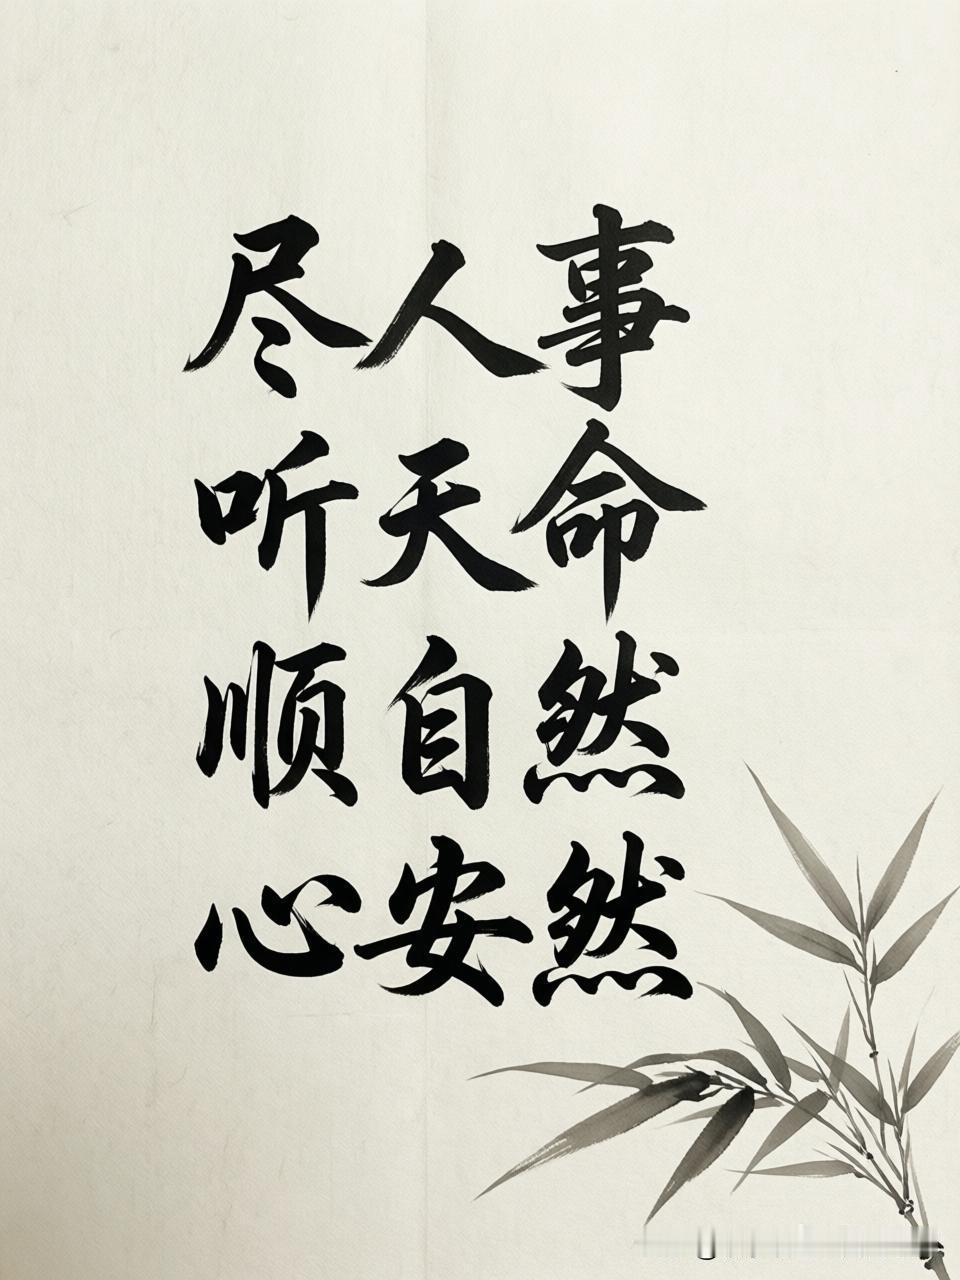 尽人事
听天命
顺自然
心安然